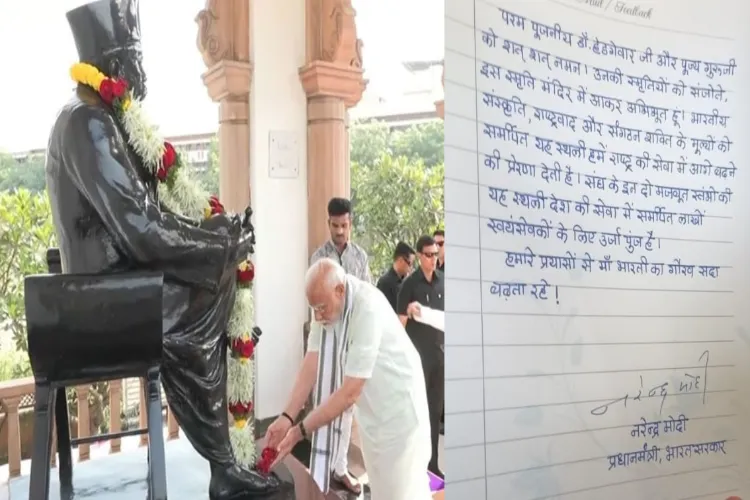 Feedback
परम पूजनीय डॉ. हेडगेवार जी और पूज्य गुरुजी
को शत् शत् नमन। उनकी स्मृतियों को संजोते,
इस स्मृति मंदिर में आकर अभिभूत हूं। भारतीय
संस्कृति, राष्ट्रवाद और संगठन शक्ति के मूल्यों को
समर्पित यह स्थली हमें राष्ट्र की सेवा में आगे बढ़ने
की प्रेरणा देती है। संघ के इन दो मजबूत स्तंभों की
यह स्थली देश की सेवा में समर्पित लाखों
स्वयंसेवकों के लिए ऊर्जा पुंज है।
हमारे प्रयासों से माँ भारती का गौरव सदा
बढ़ता रहे!
नरेन्द्र मोदी
नरेन्द्र मोदी
प्रधानमंत्री, भारत सरकार